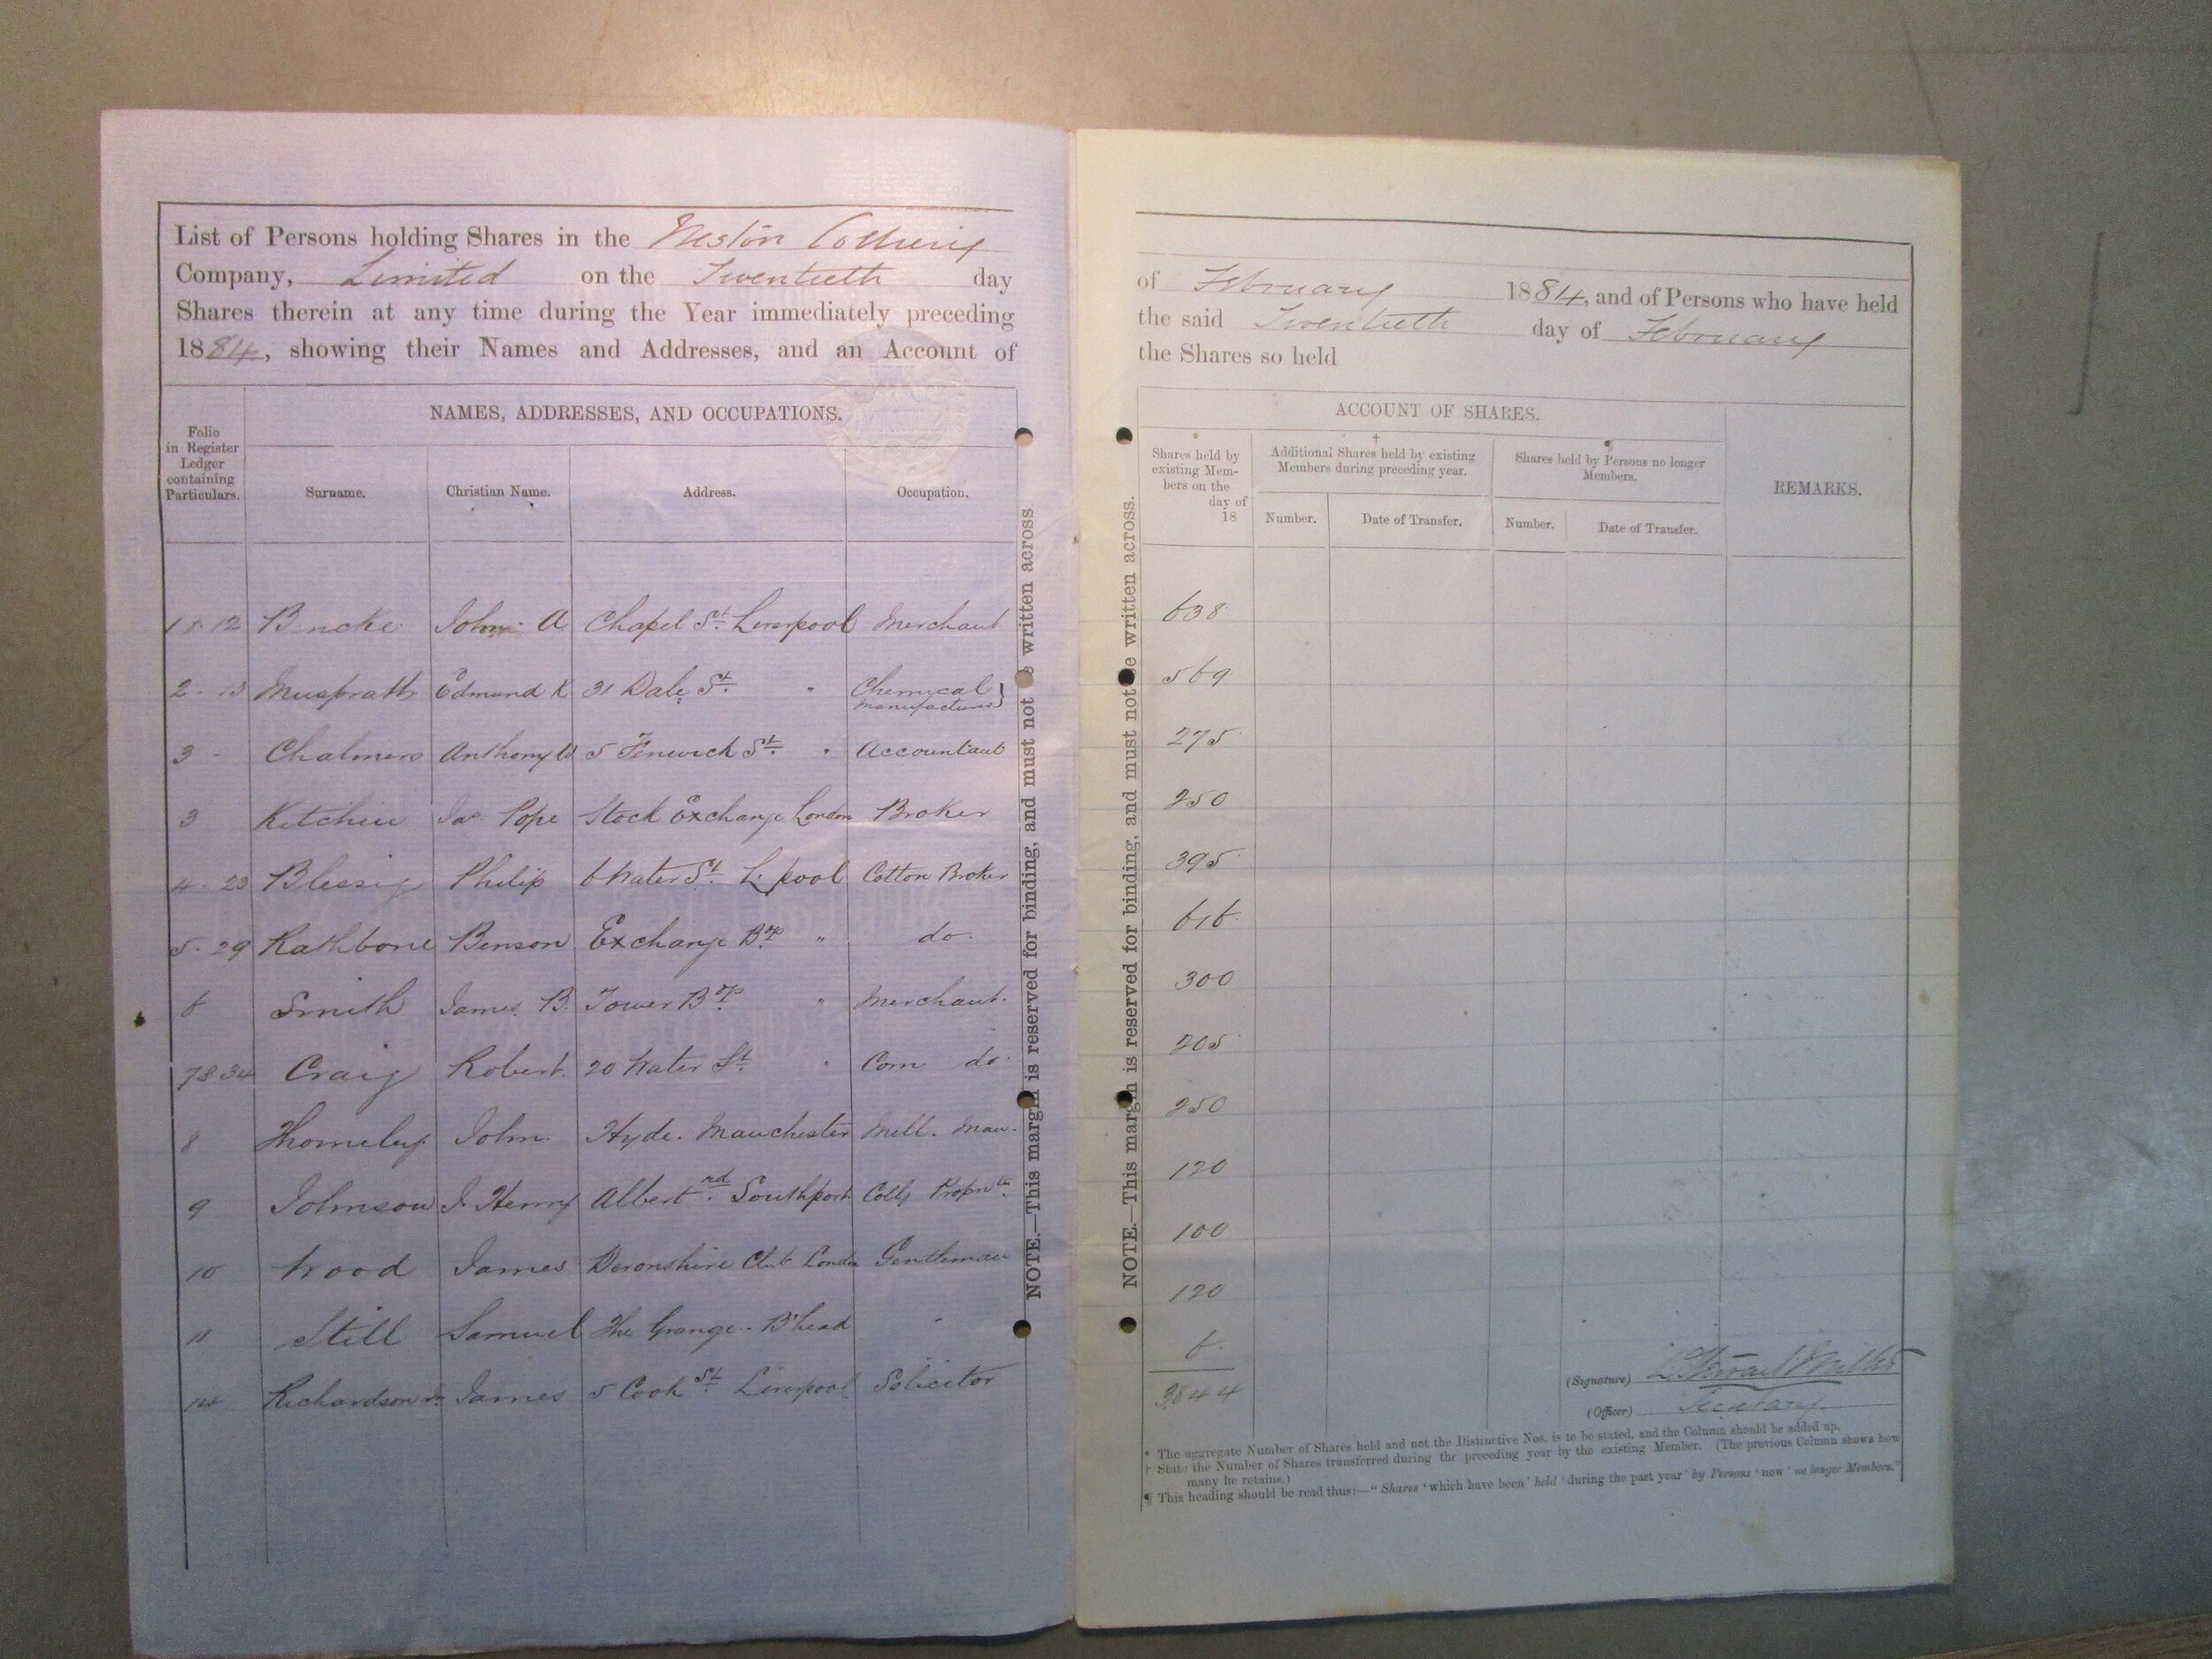 List of Persons holding Shares in the Neston Colliery
Company, Limited on the Twentieth day
Shares therein at any time during the Year immediately preceding
1884, showing their Names and Addresses, and an Account of
NAMES, ADDRESSES, AND OCCUPATIONS.
Folio
in Register
Ledger
containing
Particulars.
Surname. Christian Name. Address. Occupation.
1 & 12 Bencke John A Chapel St. Liverpool Merchant
2 - 13 Muspratt Edmund K 31 Dale St. " Chemical
Manufacturer }
3 - Chalmers Anthony W 5 Fenwick St. " Accountant
3 Kitchin Jas Pope Stock Exchange London Broker
4. 23 Blessig Philip 6 Water St. L'pool Cotton Broker
5. 29 Rathbone Benson Exchange Bgs " do.
6 Smith James B. Tower Bgs " Merchant.
7 & 34 Craig Robert. 20 Water St. " Corn do.
8 Thorneley John. Hyde. Manchester Mill. Man.
9 Johnson J. Henry Albert rd. Southport Colly Propr
10 Wood James Devonshire Club London Gentleman
11 Still Samuel The Grange - B'head "
14 Richardson Jr James 5 Cook St. Liverpool Solicitor
NOTE.—This margin is reserved for binding, and must not be written across
of February 1884, and of Persons who have held
the said Twentieth day of February
the Shares so held
ACCOUNT OF SHARES.
* Shares held by
existing Mem-
bers on the
day of
18
† Additional Shares held by existing
Members during preceding year.
Number. Date of Transfer.
¶ Shares held by Persons no longer
Members.
Number. Date of Transfer.
REMARKS.
638
569
275
250
395
616
300
205
250
120
100
120
6
3844
(Signature)
(Officer) Secretary
* The aggregate Number of Shares held and not the Distinctive Nos. is to be stated, and the Column should be added up.
† State the Number of Shares transferred during the preceding year by the existing Member. (The previous Column shows how
many he retains.)
¶ This heading should be read thus:—"Shares 'which have been' held 'during the past year' by Persons 'now' no longer Members."
NOTE.—This margin is reserved for binding, and must not be written across.